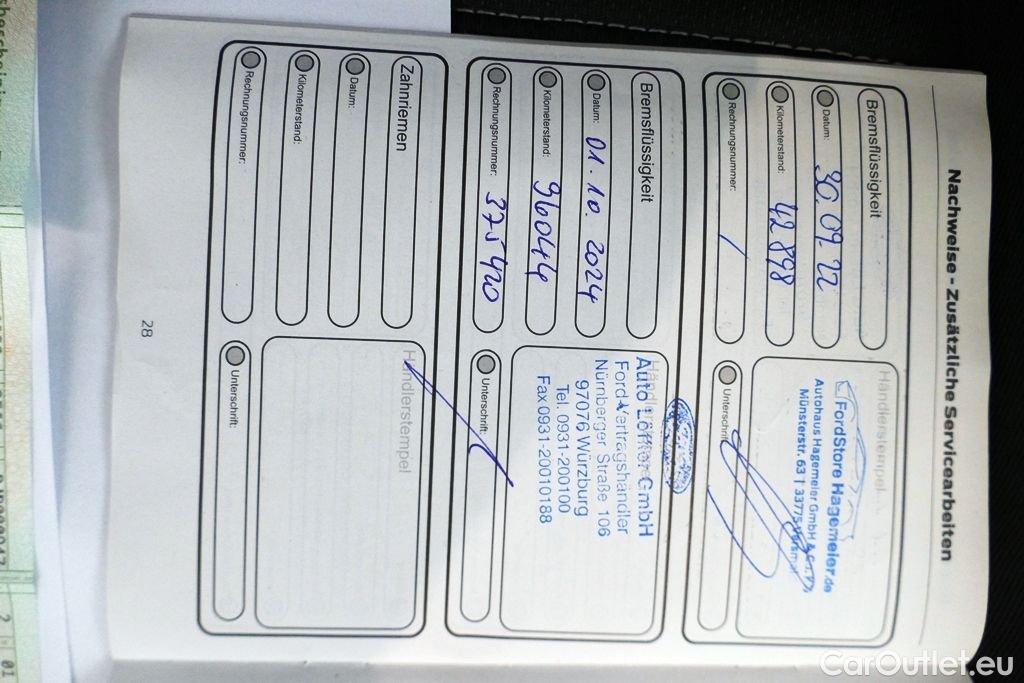 Nachweise - zusätzliche Servicearbeiten
Bremsflüssigkeit
Datum: 30.09.22
Kilometerstand: 42 898
Rechnungsnummer: /
Händlerstempel
FordStore Hagemeier.de
Autohaus Hagemeier GmbH & Co.
Münsterstr. 63 | 33775 Versmold
Unterschrift:
Bremsflüssigkeit
Datum: 01.10.2024
Kilometerstand: 96044
Rechnungsnummer: 375420
Auto Löffler GmbH
Ford-Vertragshändler
Nürnberger Straße 106
97076 Würzburg
Tel. 0931-200100
Fax 0931-20010188
Unterschrift:
Zahnriemen
Datum:
Kilometerstand:
Rechnungsnummer:
Händlerstempel
Unterschrift:
28
CarOutlet.eu